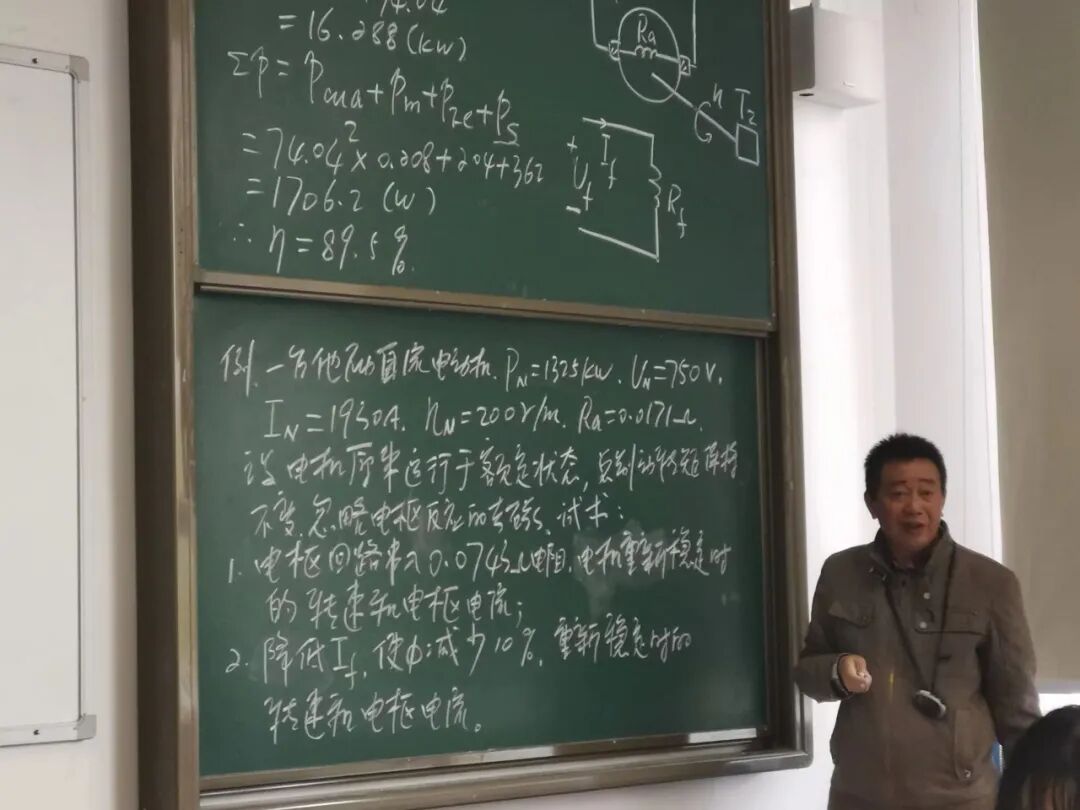 74.04
= 16.288(kw)
Σp = pcua+pm+pfe+ps
= 74.04² × 0.208+204+362
= 1706.2 (W)
∴ η = 89.5%.
Ra
n T2
+
If
Uf
Rf
−
例. 一台他励直流电动机. PN=1325kw. UN=750V.
IN=1930A. nN=200r/m. Ra=0.0171Ω.
设电机原来运行于额定状态, 总制动转矩保持
不变, 忽略电枢反应的去磁, 试求:
1. 电枢回路串入0.0743Ω电阻, 电机重新稳定时
的转速和电枢电流;
2. 降低If, 使Φ减少10%. 重新稳定时的
转速和电枢电流。